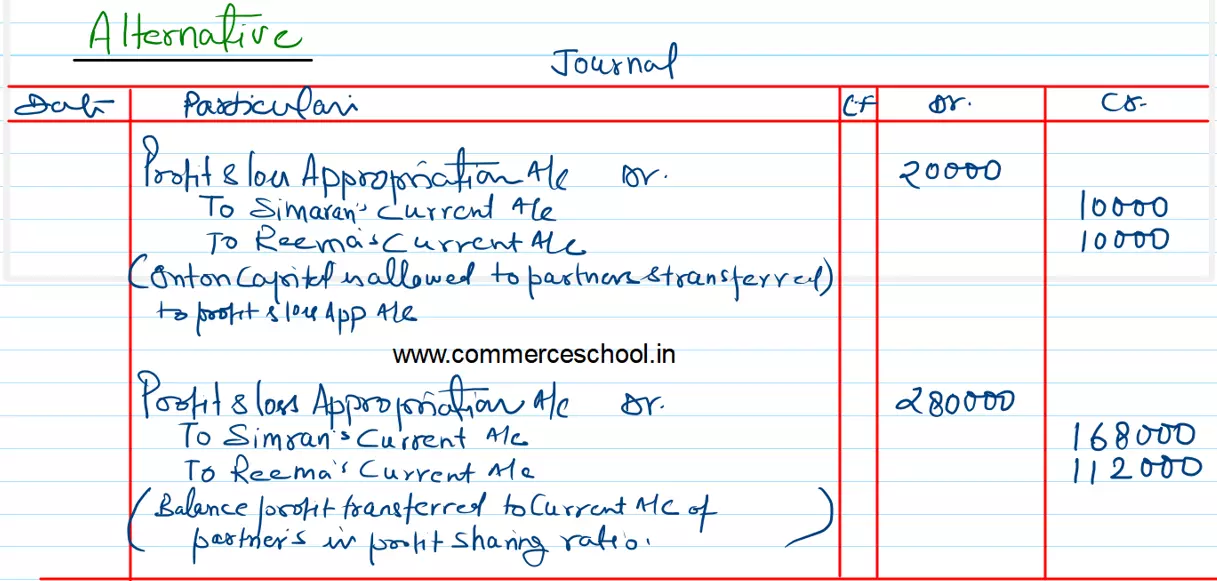 Alternative
Journal
Date Particulars LF Dr. Cr.
Profit & loss Appropriation A/c Dr. 20000
To Simaran's Current A/c 10000
To Reema's Current A/c 10000
(Int on Capital is allowed to partners & transferred)
to profit & loss App A/c
www.commerceschool.in
Profit & loss Appropriation A/c Dr. 280000
To Simran's Current A/c 168000
To Reema's Current A/c 112000
(Balance profit transferred to Current A/C of
partner's in profit sharing ratio.)